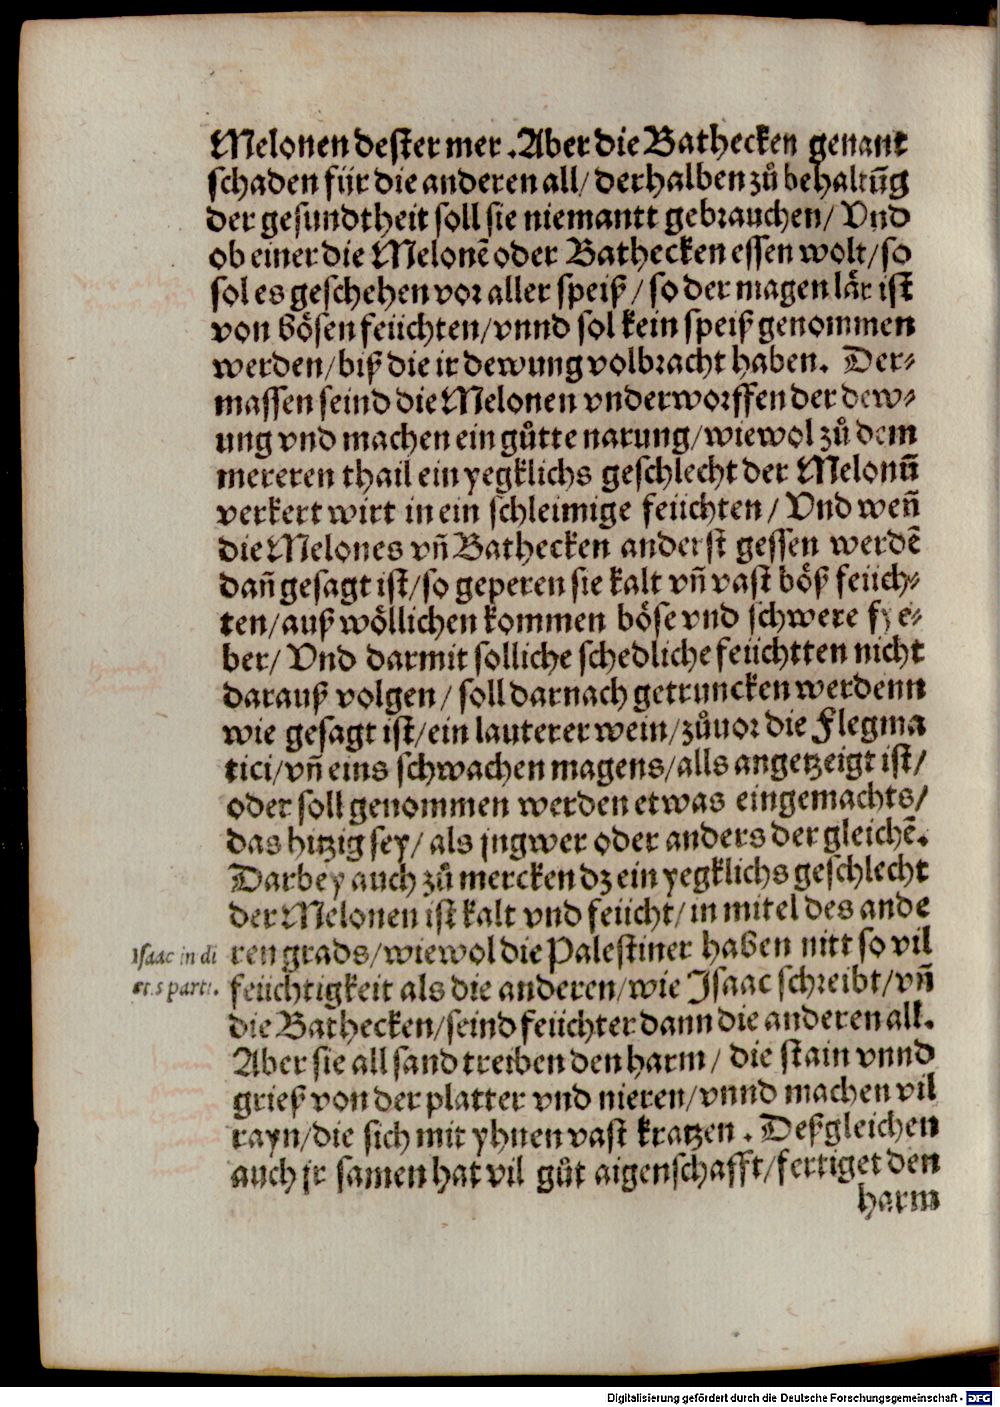 Melonen dester mer. Aber die Bathecken genant
schaden für die anderen all/ derhalben zů behaltũg
der gesundtheit soll sie niemantt gebrauchen/ Vnd
ob einer die Melonẽ oder Bathecken essen wolt/ so
sol es geschehen vor aller speiß/ so der magen lär ist
von bösen feüchten/ vnnd sol kein speiß genommen
werden/ biß die ir dewung volbracht haben. Der-
massen seind die Melonen vnderworffen der dew-
ung vnd machen ein gůtte narung/ wiewol zů dem
mereren thail ein yegklichs geschlecht der Melonñ
verkert wirt in ein schleimige feüchten/ Vnd weñ
die Melones vñ Bathecken anderst gessen werdẽ
dañ gesagt ist/ so geperen sie kalt vñ vast böß feüch-
ten/ auß wöllichen kommen böse vnd schwere fye-
ber/ Vnd darmit solliche schedliche feüchtten nicht
darauß volgen/ soll darnach getruncken werdenn
wie gesagt ist/ ein lauterer wein/ zůuor die Flegma
tici/ vñ eins schwachen magens/ alls angetzeigt ist/
oder soll genommen werden etwas eingemachts/
das hitzig sey/ als jngwer oder anders der gleichẽ.
Darbey auch zů mercken dz ein yegklichs geschlecht
der Melonen ist kalt vnd feücht/ in mitel des ande
Isaac in di
ren grads/ wiewol die Palestiner haben nitt so vil
et.s parti.
feüchtigkeit als die anderen/ wie Isaac schreibt/ vñ
die Bathecken/ seind feüchter dann die anderen all.
Aber sie all sand treiben den harm/ die stain vnnd
grieß von der platter vnd nieren/ vnnd machen vil
rayn/ die sich mit yhnen vast kratzen. Deßgleichen
auch jr samen hat vil gůt aigenschafft/ fertiget den
harm
Digitalisierung gefördert durch die Deutsche Forschungsgemeinschaft - DFG